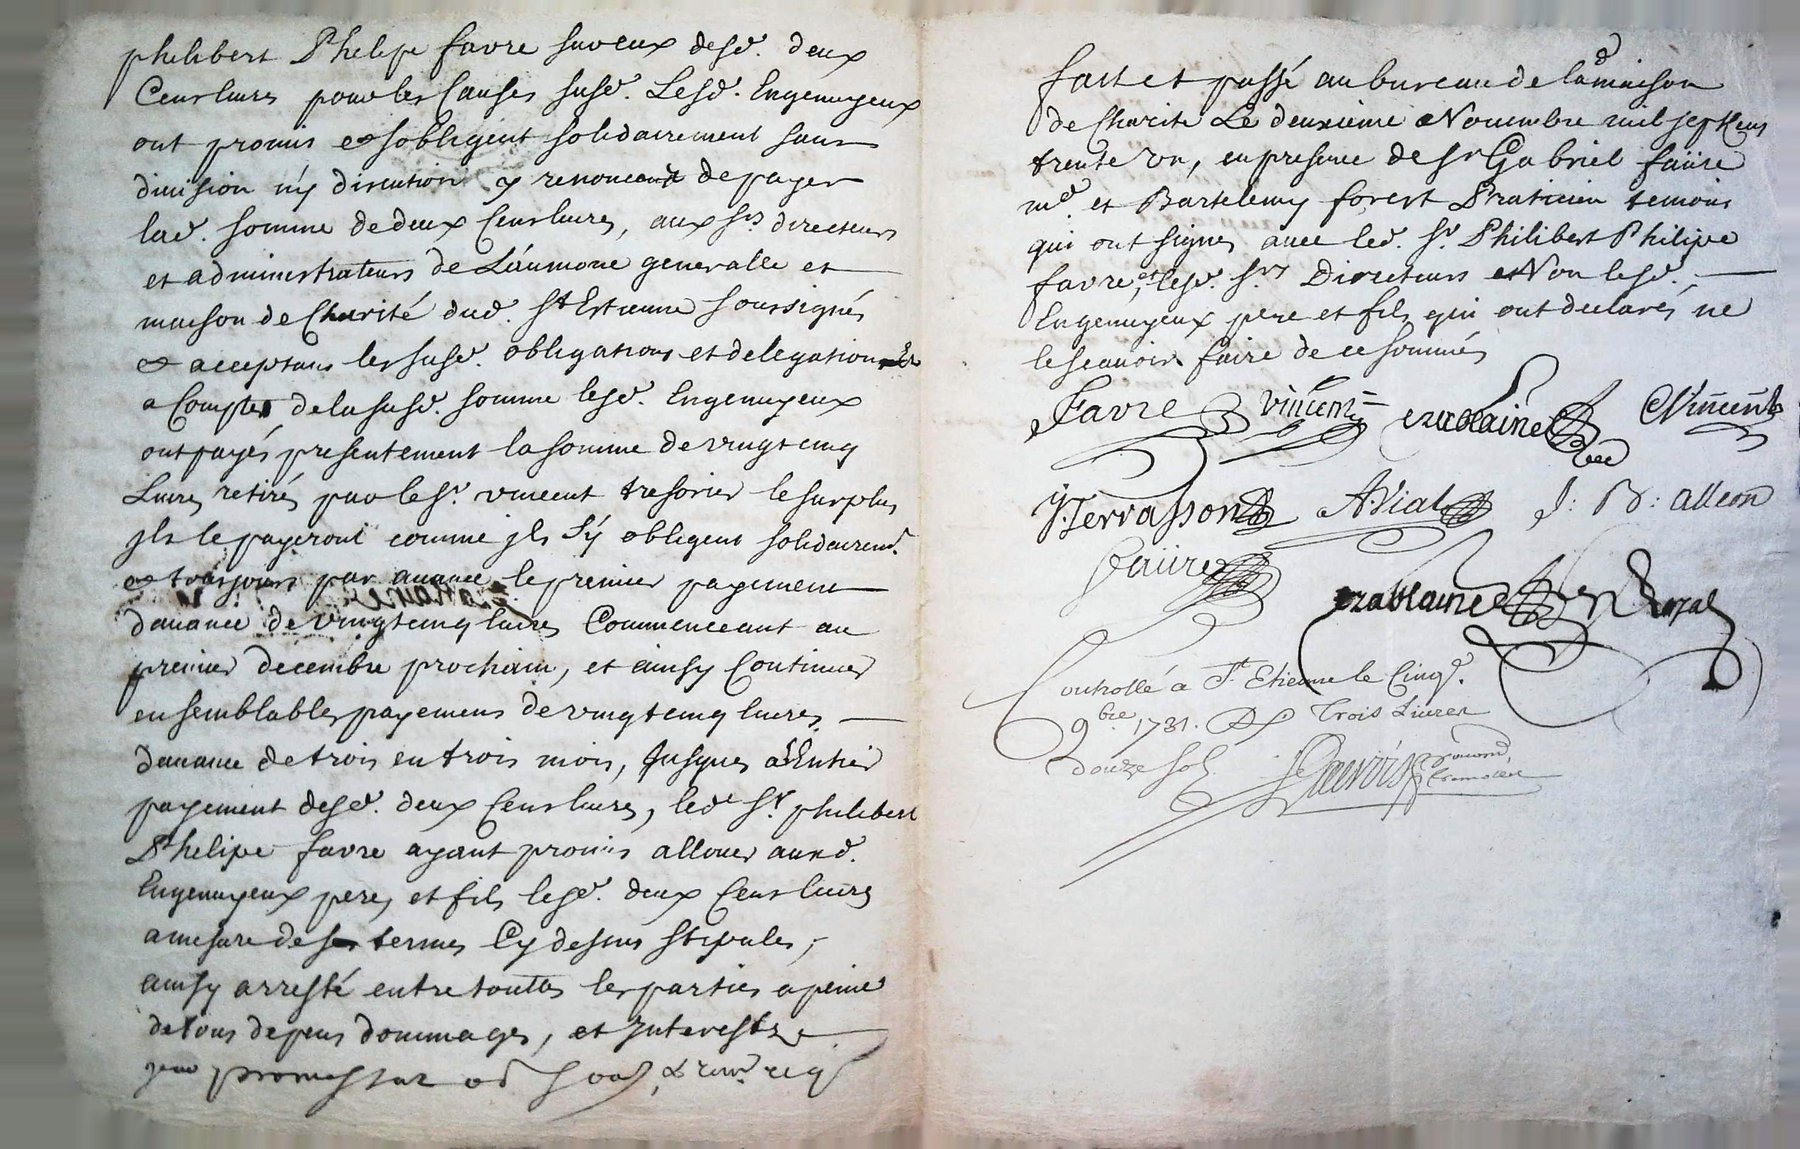 philibert Phelipe favre sur eux desd. deux
Cens livres pour les Causes susd. Lesd. Engenuyeux
ont promis et sobligent solidairement sans
division ny discution y renonceant de payer
lad. somme de deux Cens livres, aux srs directeurs
et administrateurs de L'aumone generalle et
maison de Charité dud. St Estienne soussignés
et acceptans les susd. obligations et delegation Et
a Compte de la susd. somme lesd. Engenuyeux
ont payés presentement la somme de vingt cinq
Livres retirés par le Sr. vincent tresorier le surplus
jls le payeront comme jls s'y obligent solidairemt.
et toujours par avance le premier payement
davance de vingt cinq livres Commenceant au
premier decembre prochain, et ainsy Continuer
en semblables payemens de vingt cinq livres
davance de trois en trois mois, jusques a l'Entier
payement desd. deux Cens livres, led. Sr. philibert
Phelipe favre ayant promis allouer auxd.
Engenuyeux pere et fils lesd. deux Cens livres
a mesure de ses termes Cy dessus stipules,
ainsy arresté entre toutes les parties a peine
de tous depens dommages, et Interests
promettant
fait et passé au bureau de lad. maison
de Charité Le deuxieme Novembre mil sept Cens
trente un, en presence de sr Gabriel faure
md. et Bartelemy forest Praticien temoins
qui ont signes avec led. Sr. Philibert Philipe
favre, et lesd. Srs Directeurs et Non lesd.
Engenuyeux pere et fils qui ont declarés ne
le scavoir faire de ce sommés
Favre vincent ezablaine CVincent
JTerrasson AVial J: B: alleon
faure ezablaine
Controllé a St. Etienne le Cinq
9bre 1731. Trois Livres
douze sols